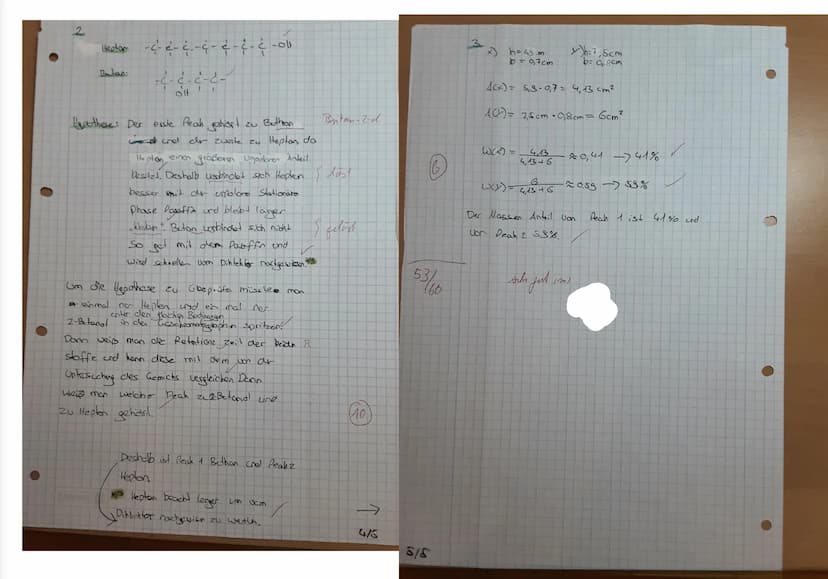 2
Heptan -C-C-C-C-C-C-C-OH
Butan: -C-C-C-C-
OH
Hypothese: Der erste Peak gehört zu Buthan Butan-2-ol
und der zweite zu Heptan da
Heptan einen größeren unpolaren Anteil
besitzt. Deshalb verbindet sich Heptan löst
besser mit der unpolare Stationäre
Phase Paraffin und bleibt länger
Butan verbindet sich nicht gelöst
so gut mit dem Paraffin und
wird schneller vom Dihtektor nachgewiesen.
Um die Hypothese zu überprüfe müsste man
einmal nur Heptan und ein mal nur
unter den gleichen Bedingungen
2-Butanol in den Gaschromatographen spritzen.
Dann weiß man die Retations zeit der beiden R
stoffe und kann diese mit dem von der
Untersuchung des Gemischs vergleichen Dann
weiß man welcher Peak zu 2Butanol und
zu Heptan gehört.
10
Deshalb ist Peak 1 Buthan und Peak 2
Heptan
Heptan braucht länger um vom
Dihtektor nachgewiesen zu werden.
4/5
3
x) b=0,7cm
y) h=7,5cm
b=0,8cm
A(x) = 5,9 · 0,7 = 4,13 cm²
A(y) = 7,5cm · 0,8cm = 6cm²
W(x) = 4,13 / 4,13+6 ≈ 0,41 → 41%
6
W(y) = 6 / 4,13+6 ≈ 0,59 → 59%
Der Massen Anteil von Peak 1 ist 41% und
von Peak 2 59%.
53/60
sehr gut
5/5